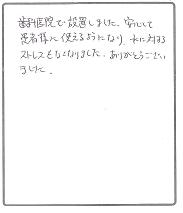 歯科医院で設置しました。安心して
患者様に使えるようになり、水に対する
ストレスもなくなりました。ありがとうござい
ました。